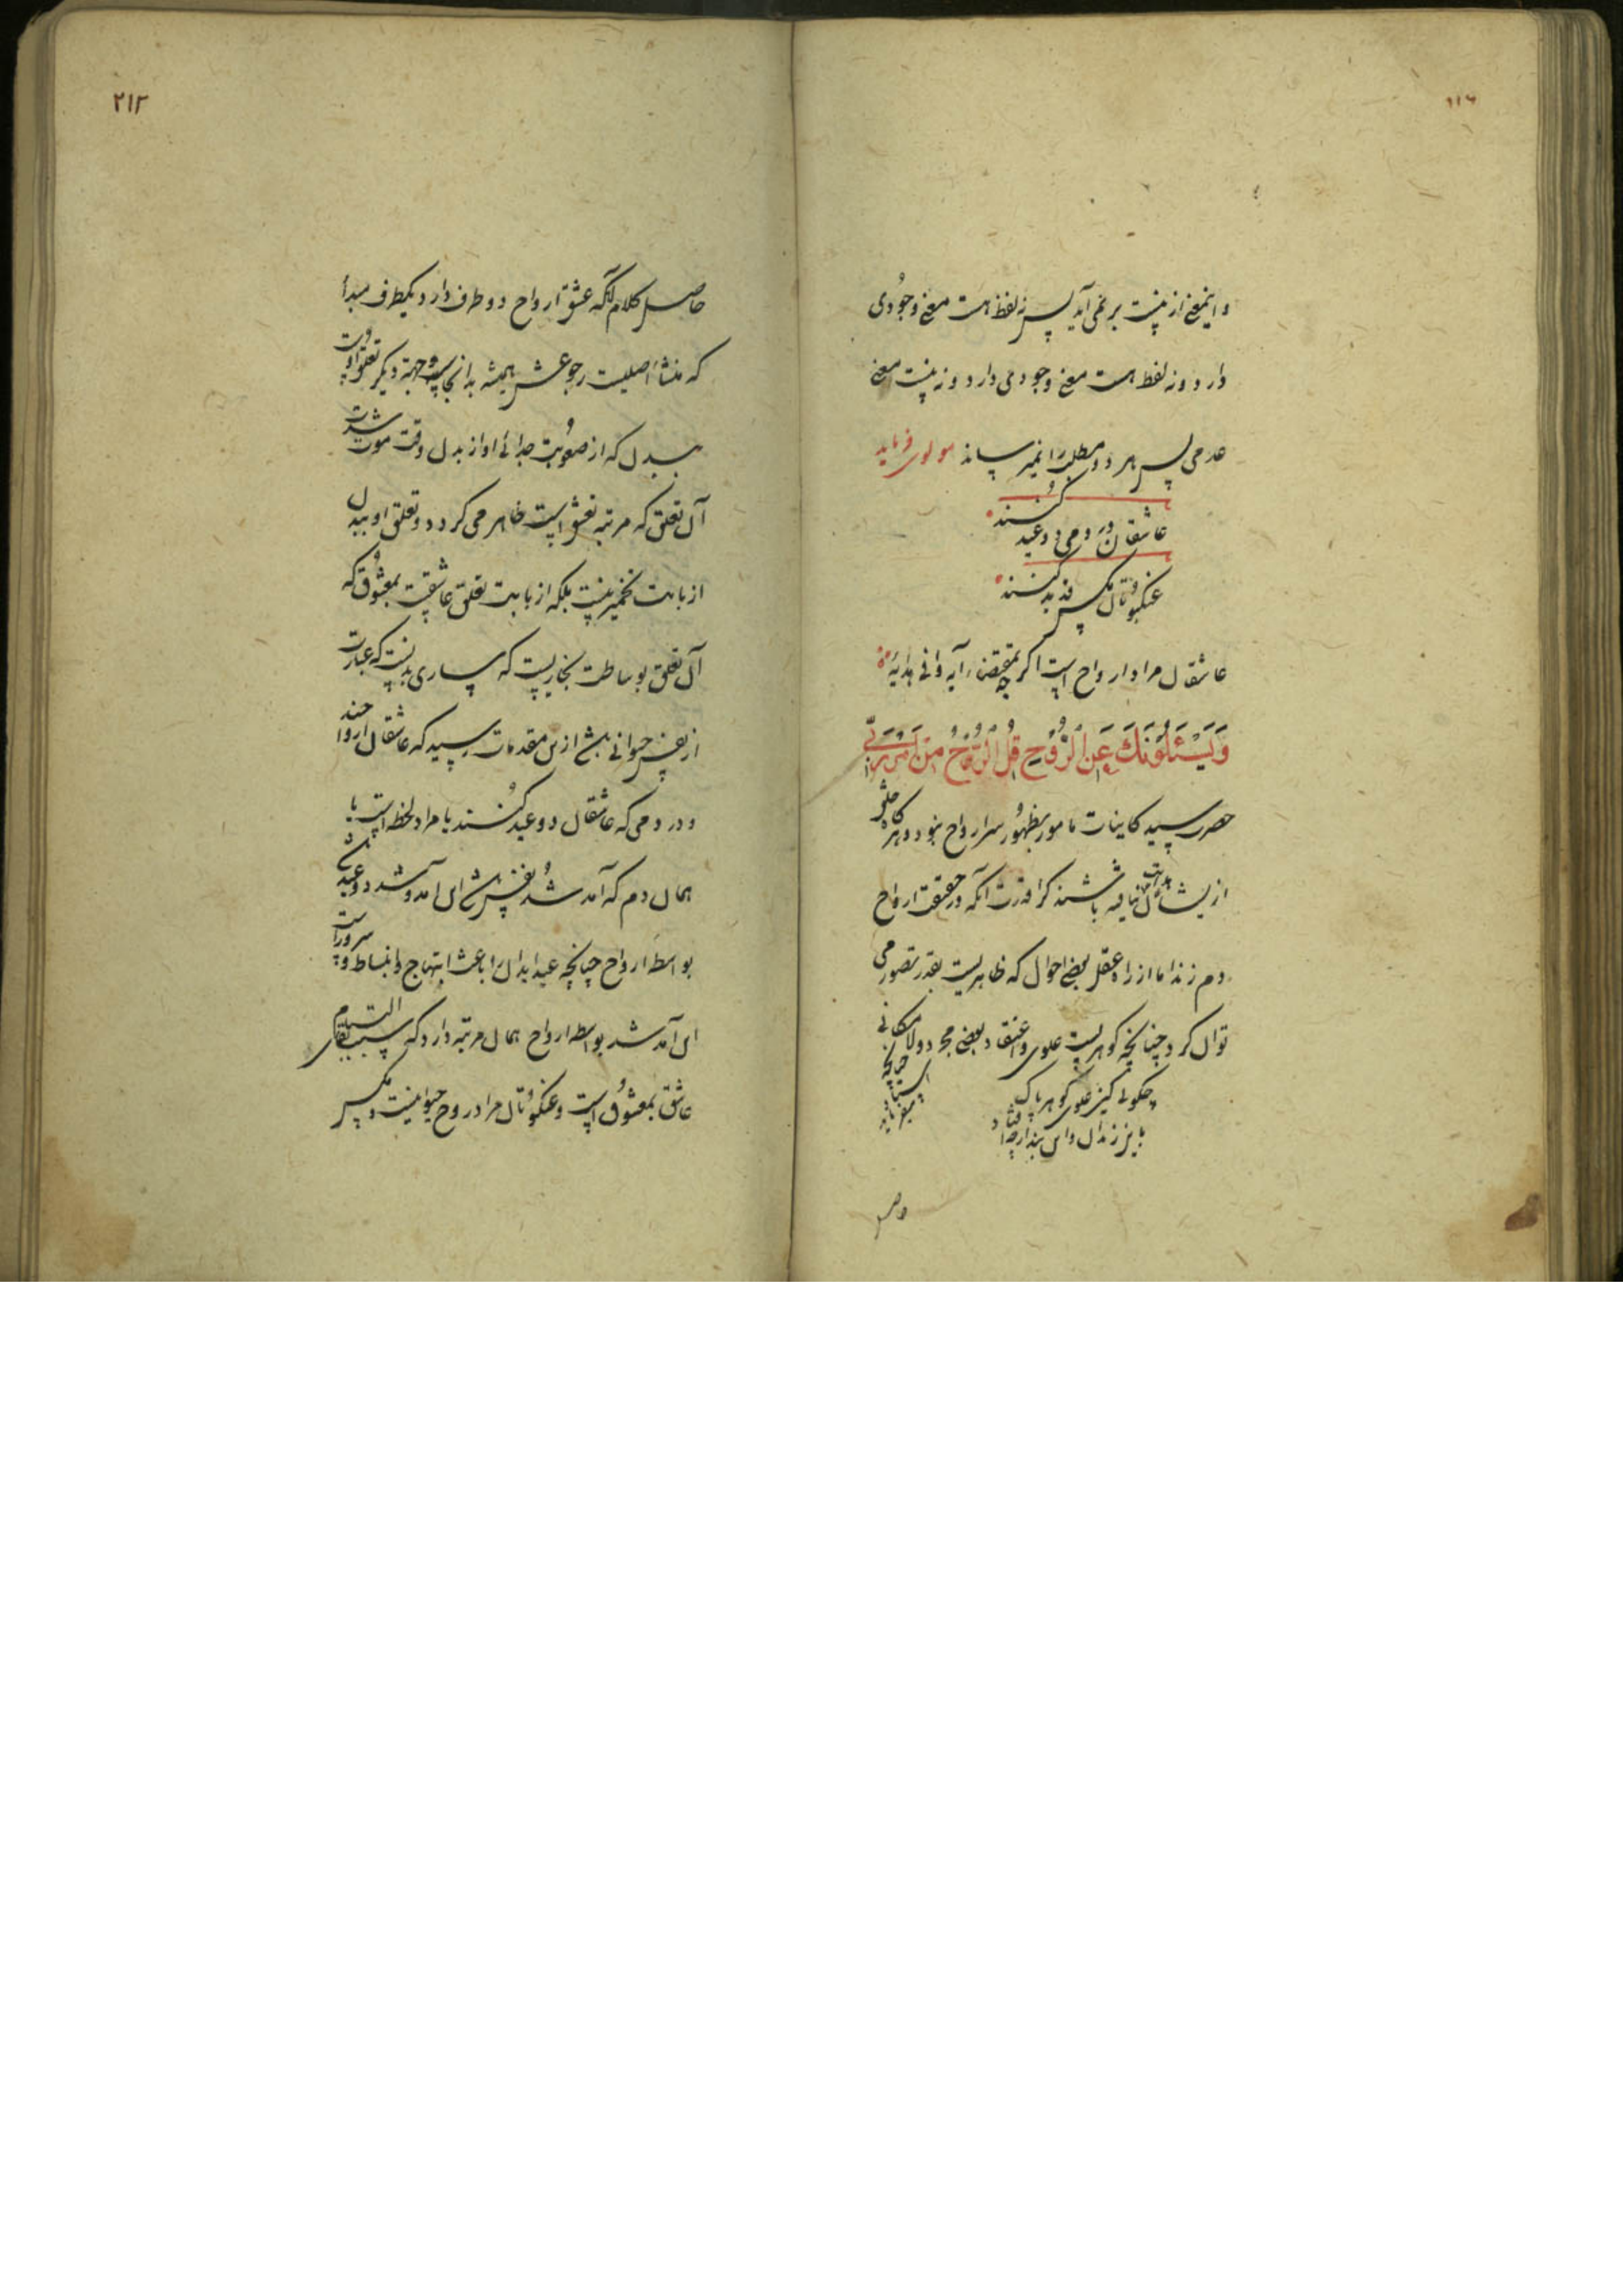 ۱۱۶
و اینمعنی از نیست بر نمی آید پس نه لفظ هست معنی وجُودی
دارد و نه لفظ هست معنی وجودمی دارد و نه نیست معنی
عدمی پس هر دو مطلب را نمیرساند مولوی فرماید
عاشقان در دمی دو عید کُنند
عنکبوتان مکس قدید کنند
عاشقان مراد ارواح است اگرچه بمقتضاء آیه وافی هدایهٔ
وَيَسْئَلُوْنَكَ عَنِ الرُّوْحِ قُلِ الرُّوْحُ مِنْ اَمْرِ رَبِّي
حضرت سید کاینات مامور بظهُور سرّ ارواح نبود و هر گاه خلق
از ایشان هدایت نیافته باشند کرا قدرت آنکه در حقیقت ارواح
دم زند اما از راه عقل بعضی احوال که ظاهریست بقدر تصور می
توان کرد چنانچه گوهریست علوی و اعتقاد بعضی مجرد و لامکانی
چگونی کنز علوی گوهر پاک
وص
۲۱۲
حاصل کلام آنکه عشق ارواح دو طرف دارد یکطرف مبدأ
که منشأ اصلیست رجوعش همیشه بدانجاست و جهة دیگر تعلق اوست
ببدن که از صعُوبت جدائی او از بدن وقت موت شدت
آن تعلق که مرتبه تعشق است ظاهر می گردد و تعلق او ببدن
از بابت تخمیر نیست بلکه از بابت تعلق عاشقیست بمعشُوق که
آن تعلق بوساطت بخاریست که ساری بدنست که عبارت
از نفس حیوانی بیش ازین مقدمات رسید که عاشقان ارواحند
و در دمی که عاشقان دو عید کُنند یا مراد لحظه است یا
همان دم که آمد شُد نفس باشد این آمد و شد دو عیدش
بواسطه ارواح چنانچه عید ابدان را باعث ابتهاج و انبساط و سروراست
این آمد شد بواسطه ارواح همان مرتبه دارد که سبب بقای
عاشق بمعشُوق است و عنکبُوتان مراد روح حیوانیست و مکس